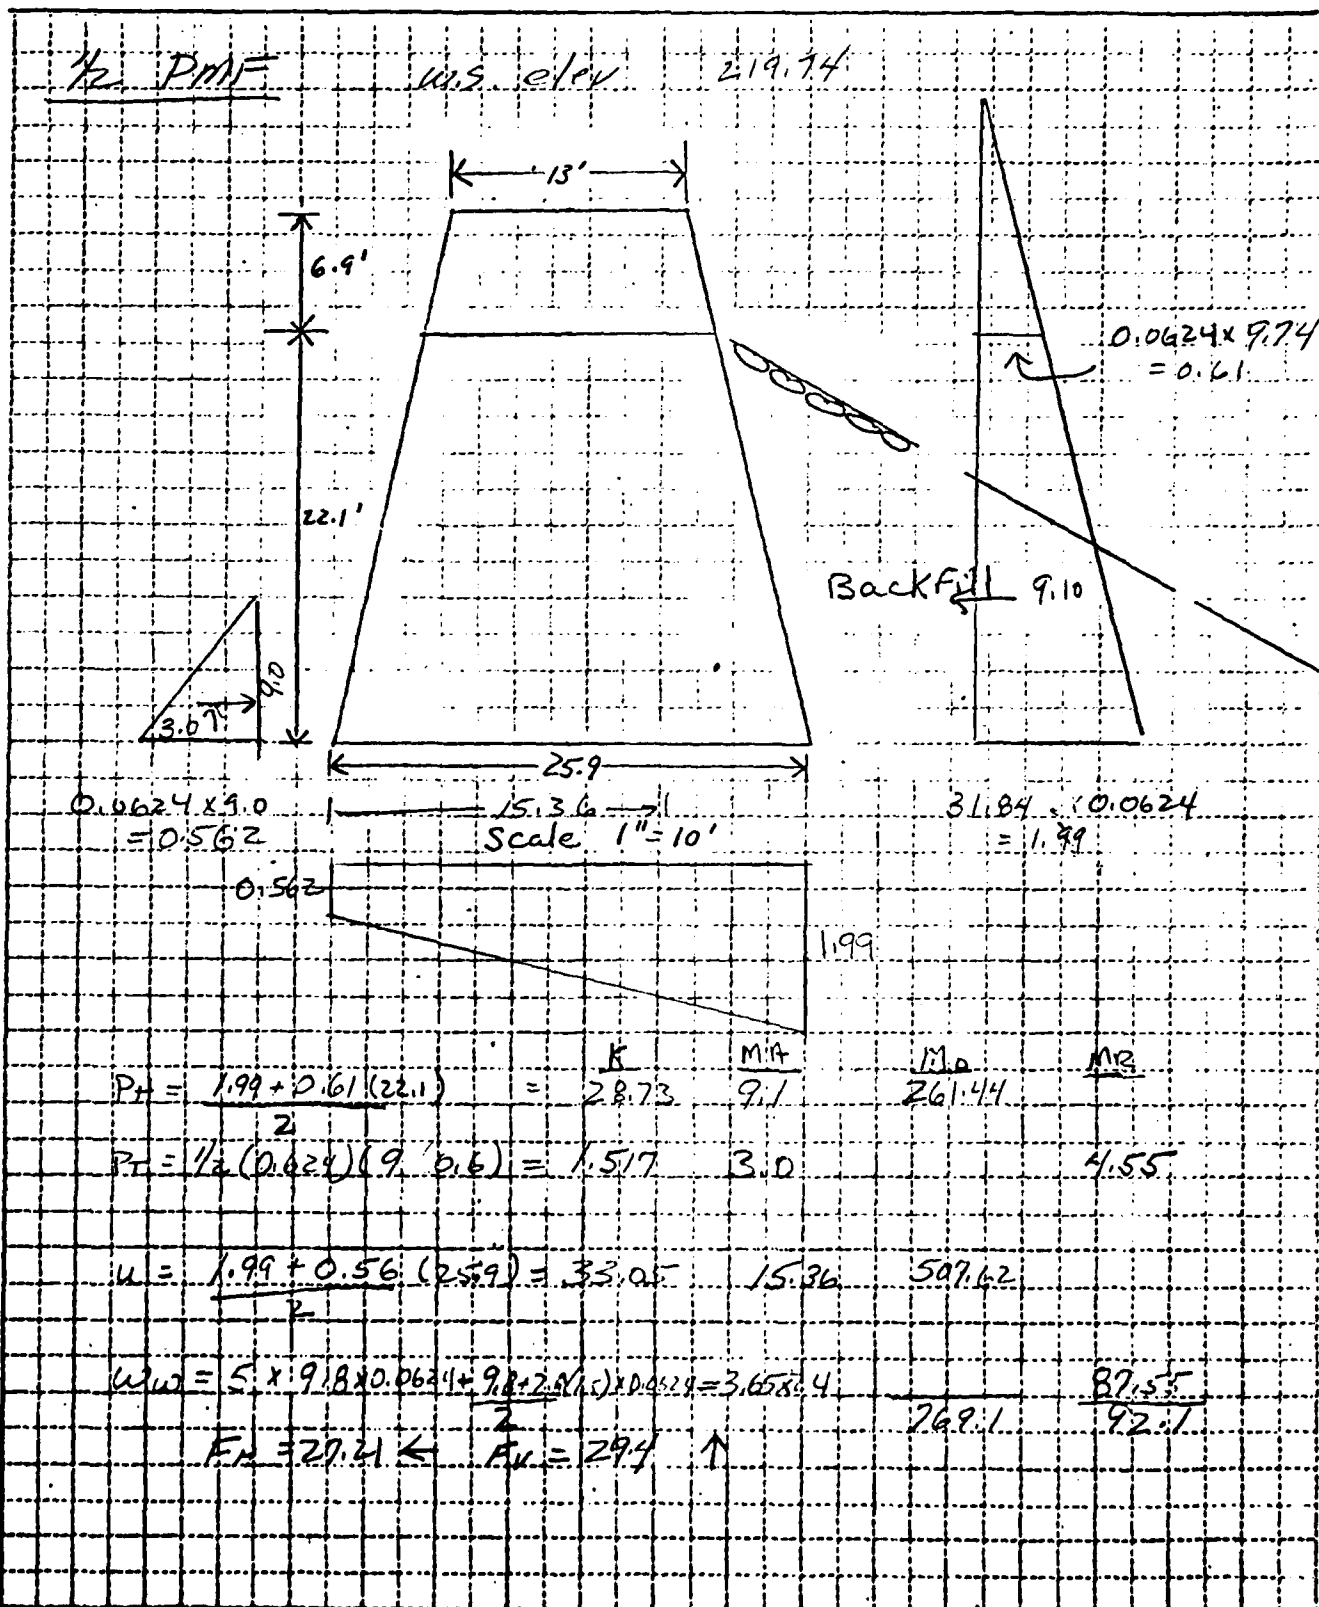 1/2 PMF w.s. elev 219.74
13'
6.9'
0.0624 x 9.74
= 0.61
22.1'
Backfill 9.10
9.0
3.0
25.9
0.0624 x 9.0
= 0.562
15.36
Scale 1" = 10'
31.84 x 0.0624
= 1.99
0.562
1.99
K M.A Mo MR
PH = 1.99 + 0.61 (22.1) = 28.73 9.1 261.44
2
PT = 1/2 (0.624)(9 0.6) = 1.517 3.0 4.55
u = 1.99 + 0.56 (25.9) = 33.05 15.36 507.62
2
Ww = 5 x 9.8 x 0.0624 + x 0.0624 = 3.65 87.55
2
769.1 92.1
FH = 27.21 ← Fv = 29.4 ↑